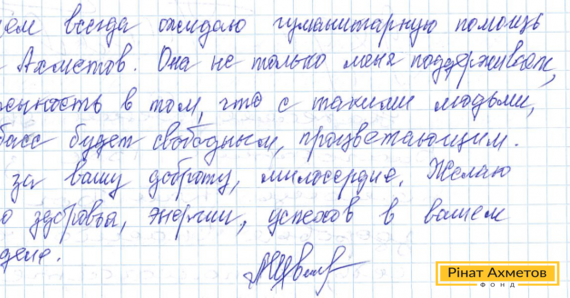 всегда ожидаю гуманитарную помощь
Ахметов. Она не только меня поддерживает,
енность в том, что с такими людьми,
басс будет свободным, процветающим.
за вашу доброту, милосердие. Желаю
о здоровья, энергии, успехов в вашем
деле.
Рінат Ахметов
ФОНД